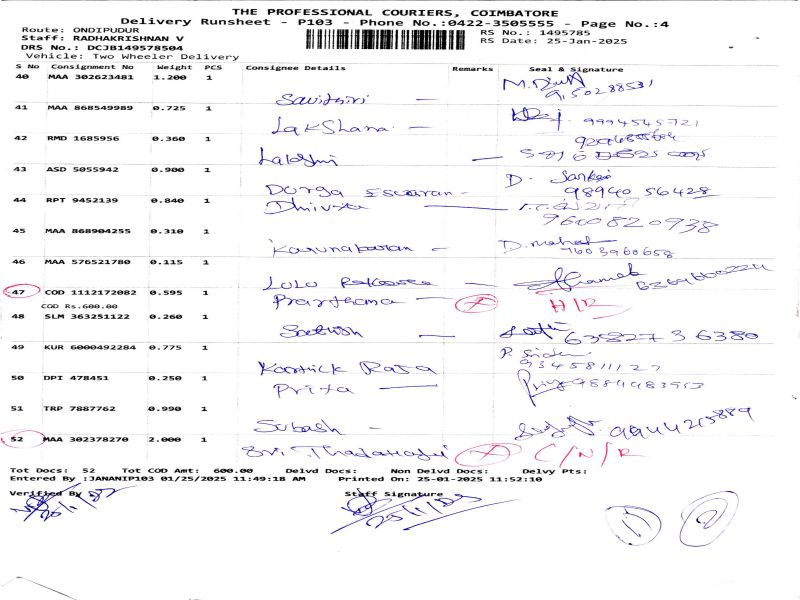 THE PROFESSIONAL COURIERS, COIMBATORE
Delivery Runsheet - P103 - Phone No.:0422-3505555 - Page No.:4
Route: ONDIPUDUR
Staff: RADHAKRISHNAN V
RS No.: 1495785
DRS No.: DCJB149578504
RS Date: 25-Jan-2025
Vehicle: Two Wheeler Delivery
S No Consignment No Weight PCS Consignee Details Remarks Seal & Signature
40 MAA 302623481 1.200 1
Savithiri - 9150288531
41 MAA 868549989 0.725 1
Lakshana - 9994545721
42 RMD 1685956 0.360 1
Lakshmi -
43 ASD 5055942 0.900 1
Durga Eswaran - D. 98940 56428
44 RPT 9452139 0.840 1
Dhivya 9600820938
45 MAA 868904255 0.310 1
Karunakaran - D. 7603960658
46 MAA 576521780 0.115 1
LULU
47 COD 1112172082 0.595 1
Prarthana - X H/R
COD Rs.600.00
48 SLM 363251122 0.260 1
Sathish - 63827 36380
49 KUR 6000492284 0.775 1
Karthick Raja 9345811127
50 DPI 478451 0.250 1
Priya - 9884483513
51 TRP 7887762 0.990 1
Subash - 9944215889
52 MAA 302378270 2.000 1
Sri. X C/N/R
Tot Docs: 52 Tot COD Amt: 600.00 Delvd Docs: Non Delvd Docs: Delvy Pts:
Entered By :JANANIP103 01/25/2025 11:49:18 AM Printed On: 25-01-2025 11:52:10
Verified By Staff Signature
1 2